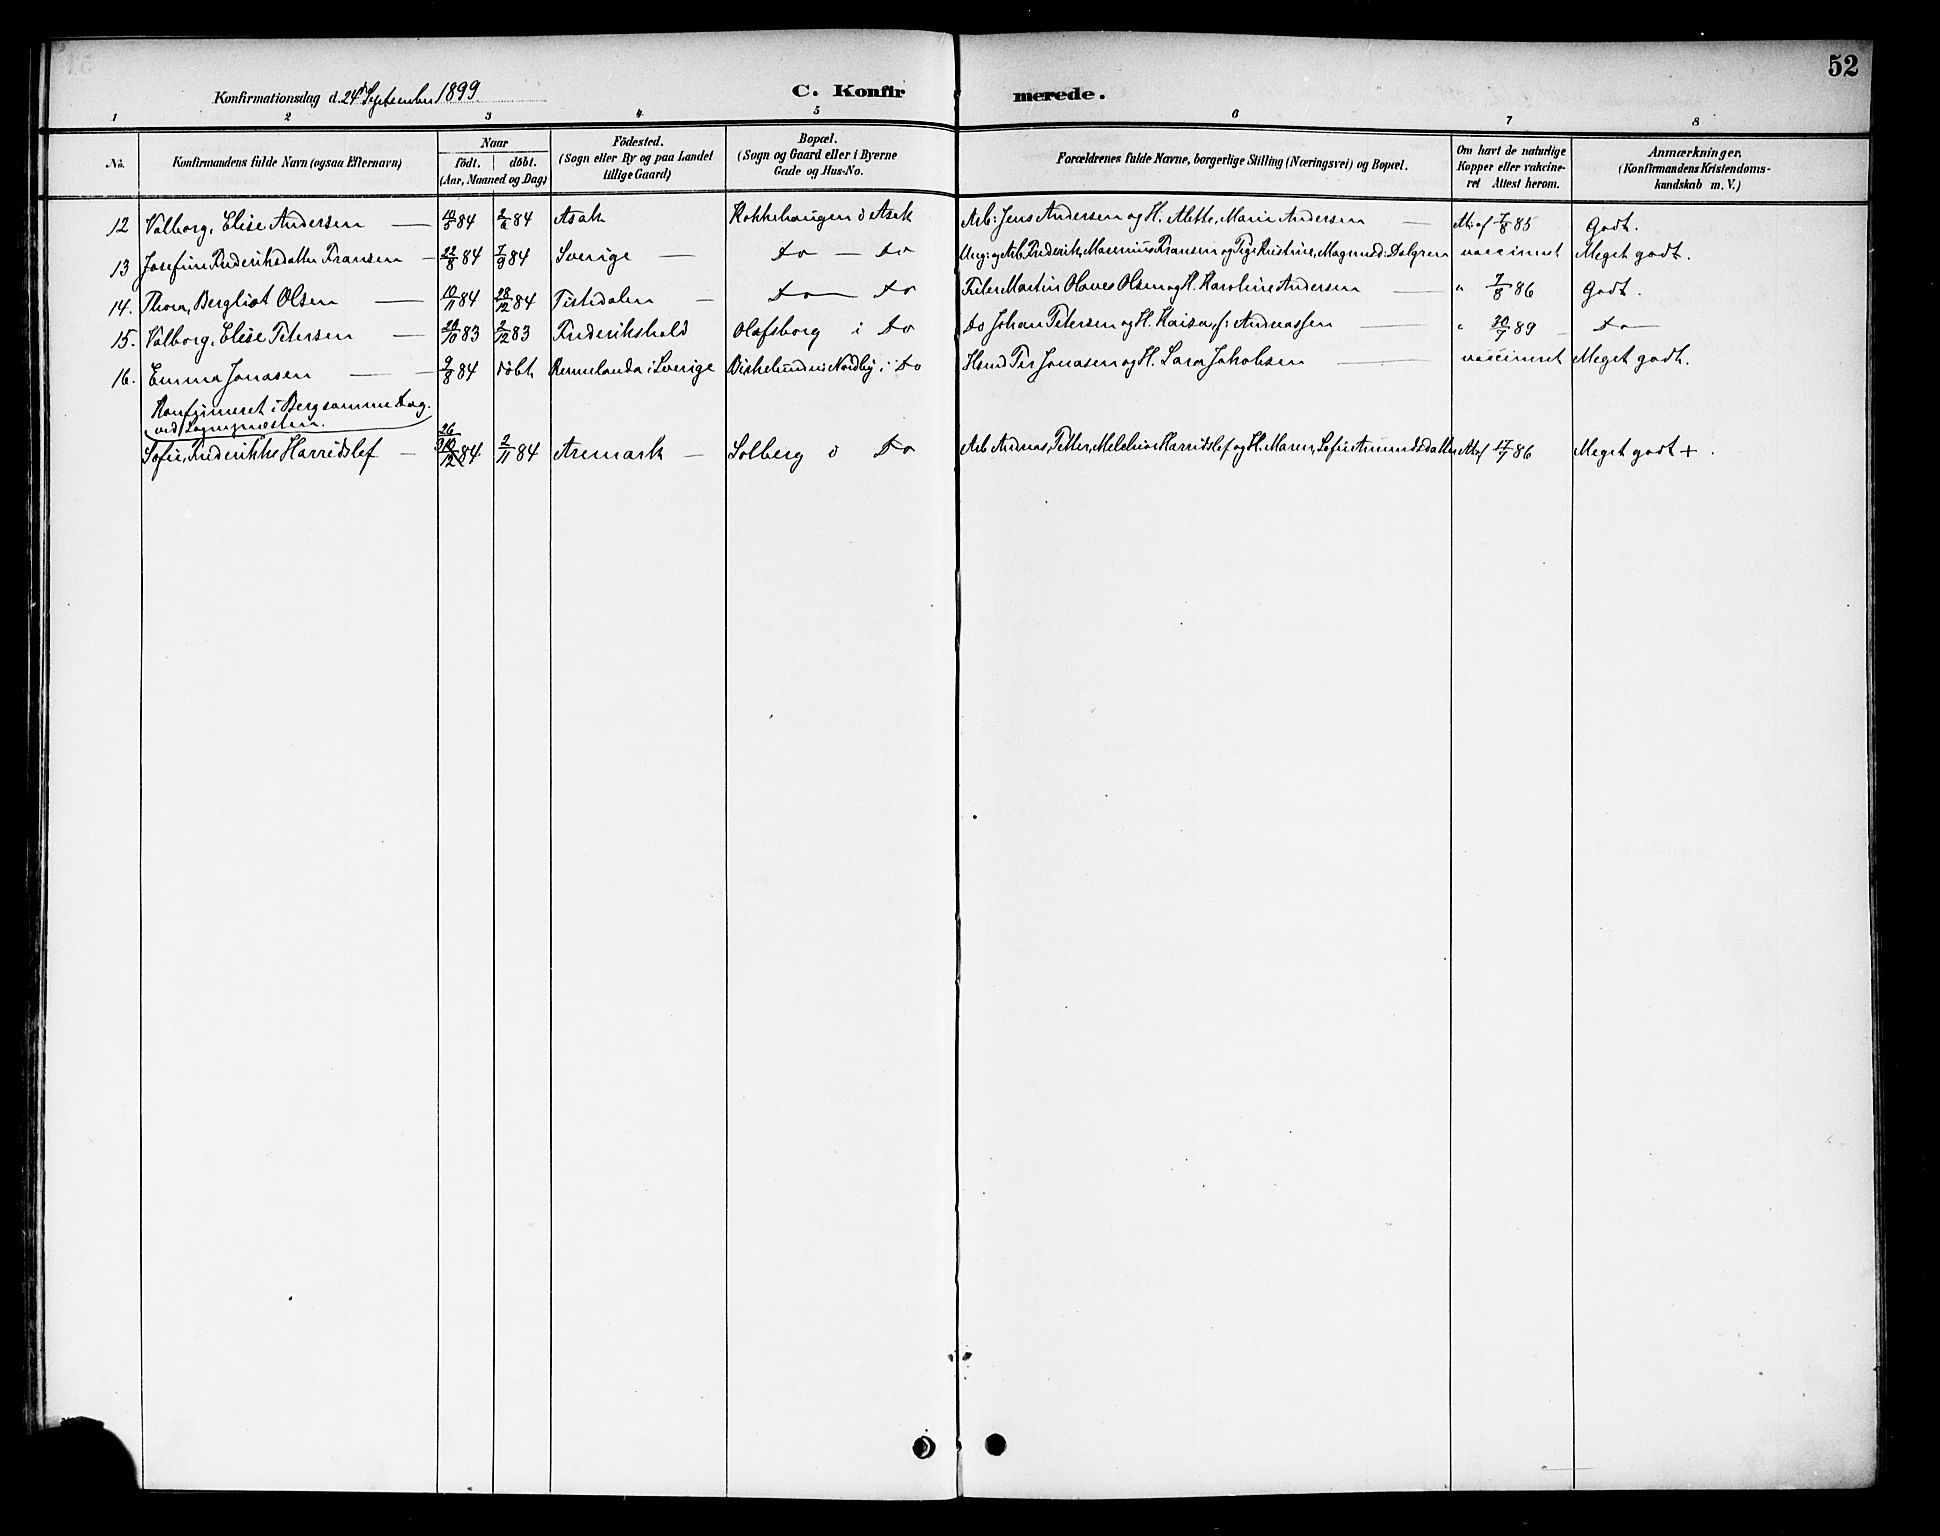 52
Konfirmationsdag d. 24d September 1899
C. Konfirmerede.
1 2 3 4 5 6 7 8
No. Konfirmandens fulde Navn (ogsaa Efternavn) Naar födt. döbt. (Aar, Maaned og Dag) Födested. (Sogn eller By og paa Landet tillige Gaard) Bopæl. (Sogn og Gaard eller i Byerne Gade og Hus-No. Forældrenes fulde Navne, borgerlige Stilling (Næringsvei) og Bopæl. Om havt de naturlige Kopper eller vakcineret Attest herom. Anmærkninger, (Konfirmandens Kristendomskundskab m. V.)
12 Valborg, Elise Andersen — 84 84 Asak Kokkehaugen i Asak Arb: Jens Andersen og H. Mette, Marie Andersen — At: af 7/8 85 Godt.
13 Josefine Frederiksdatter Fransen — 22/8 84 7/9 84 Sverige — Do — Do Ung: og Arb. Frederik, Marenius Fransen og Pige Kristine, Magnusd: Dalgren vaccineret Meget godt.
14. Thora, Bergliot Olsen — 19/11 84 28/12 84 Tistedalen — Do — Do Filer Martin Olaves Olsen og H. Karoline Andersen — " 7/8 86 Godt.
15. Valborg, Elise Petersen — 83 2/12 83 Frederikshald Olafsborg i Do Do Johan Petersen og H. Kaisa, f: Andreassen — " 30/7 89 — Do —
16. Emma Jonasen — — 9/8 84 döbt Rennelanda i Sverige Birkelunden i Nordby i Do Hsmd Per Jonasen og H. Sara Jakobsen — vaccineret Meget godt.
Konfirmeret i Berg samme Dag
ved Sognepræsten.
26
Sofie, Frederikke Harridslef — 10 84 2/11 84 Aremark — Solberg i Do Arb Andreas, Petter, Melchior Harridslef og H. Maren, Sofie Amundsdatter At: af 17/7 86 Meget godt + .